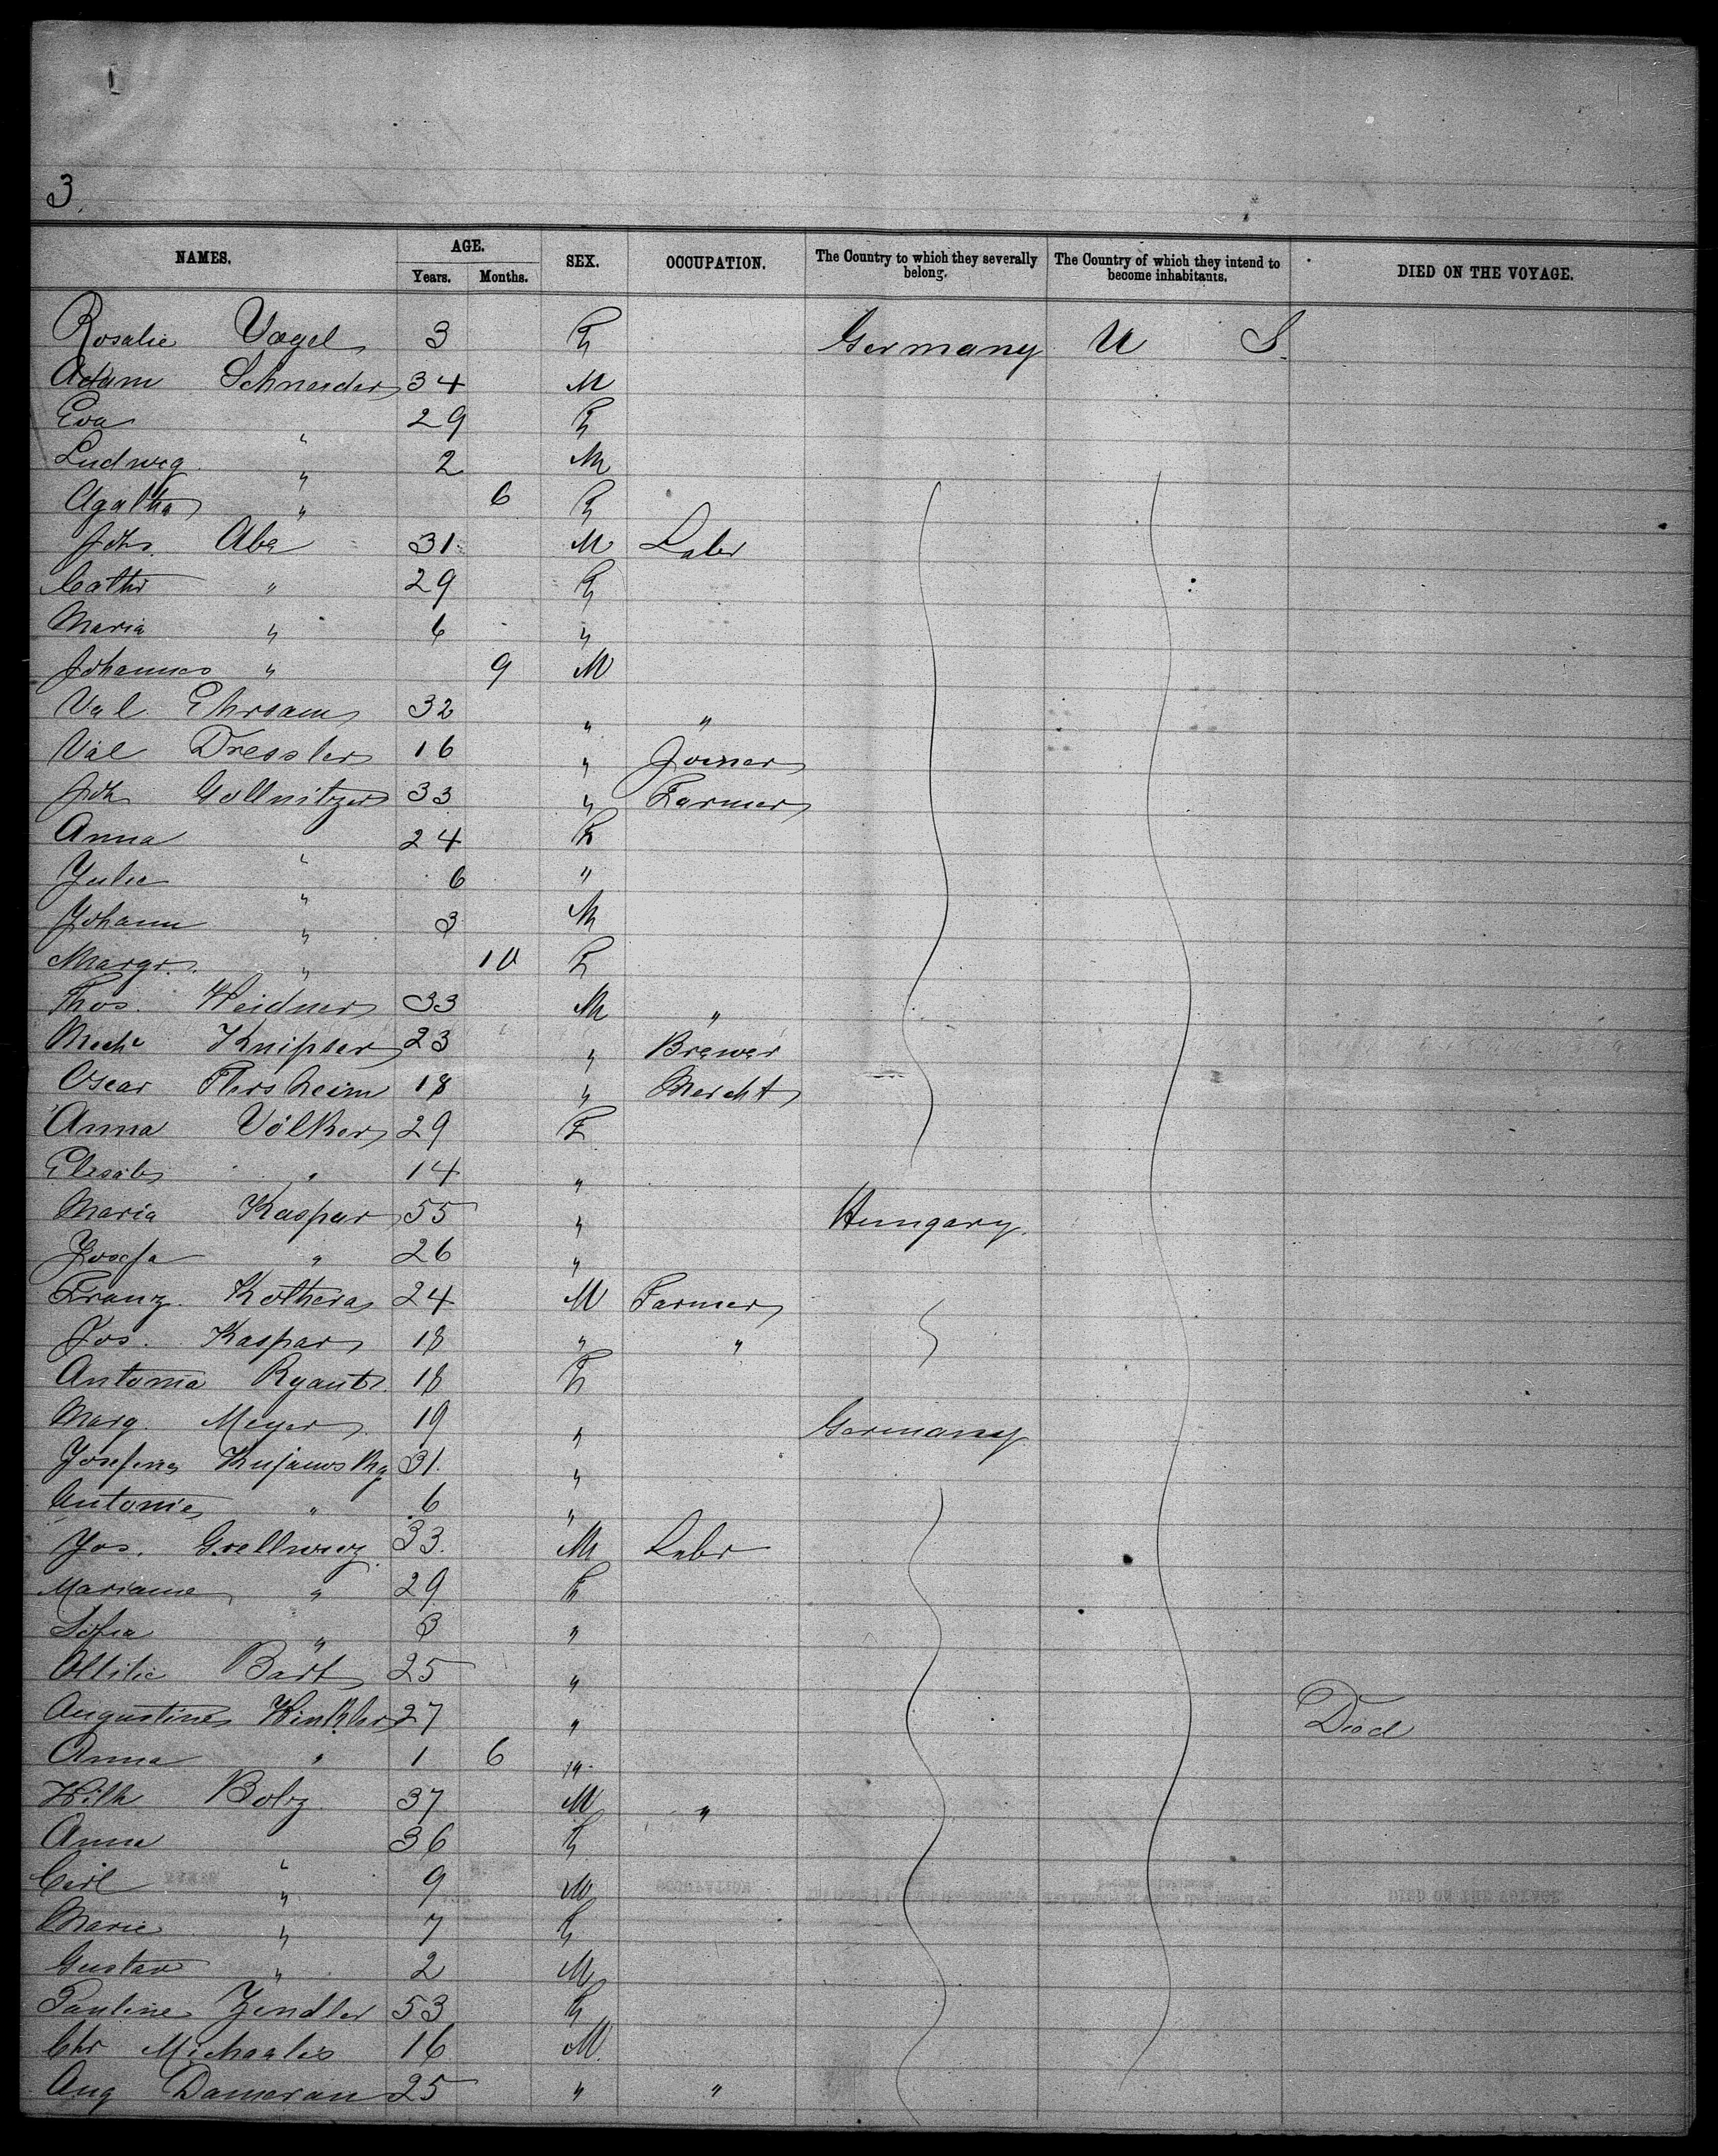 3.
NAMES. AGE. SEX. OCCUPATION. The Country to which they severally belong. The Country of which they intend to become inhabitants. DIED ON THE VOYAGE.
Years. Months.
Rosalie Vogel 3 F Germany U S.
Adam Schneider 34 M
Eva " 29 F
Ludwig " 2 M
Agatha " 6 F
Johs. Abe 31 M Labr
Cathr " 29 F
Maria " 6 "
Johannes " 9 M
Val. Ehrsam 32 " "
Val Dressler 16 " Joiner
Joh Gollnitzer 33 " Farmer
Anna " 24 F
Julie " 6 "
Johann " 3 M
Margr. " 10 F
Thos. Weidner 33 M "
Mich Knipser 23 " Brewer
Oscar Florsheim 18 " Mercht
Anna Völker 29 F
Elisab " 14 "
Maria Kaspar 55 " Hungary.
Josefa " 26 "
Franz Kothera 24 M Farmer
Jos. Kaspar 18 " "
Antonia 18 F
Marg. Meyer 19 " Germany
Josefina Kujawsky 31 "
Antonie " 6 "
Jos. 33 M Labr
Marianne " 29 F
Sofia " 3 "
Ottilie Bart 25 "
Augustine Winkler 27 " Died
Anna " 1 6 "
Wilh Bolz 37 M "
Anna " 36 F
Carl " 9 M
Marie " 7 F
Gustav " 2 M
Pauline Zendler 53 F
Chr Michaelis 16 M
Aug Dameran 25 " "